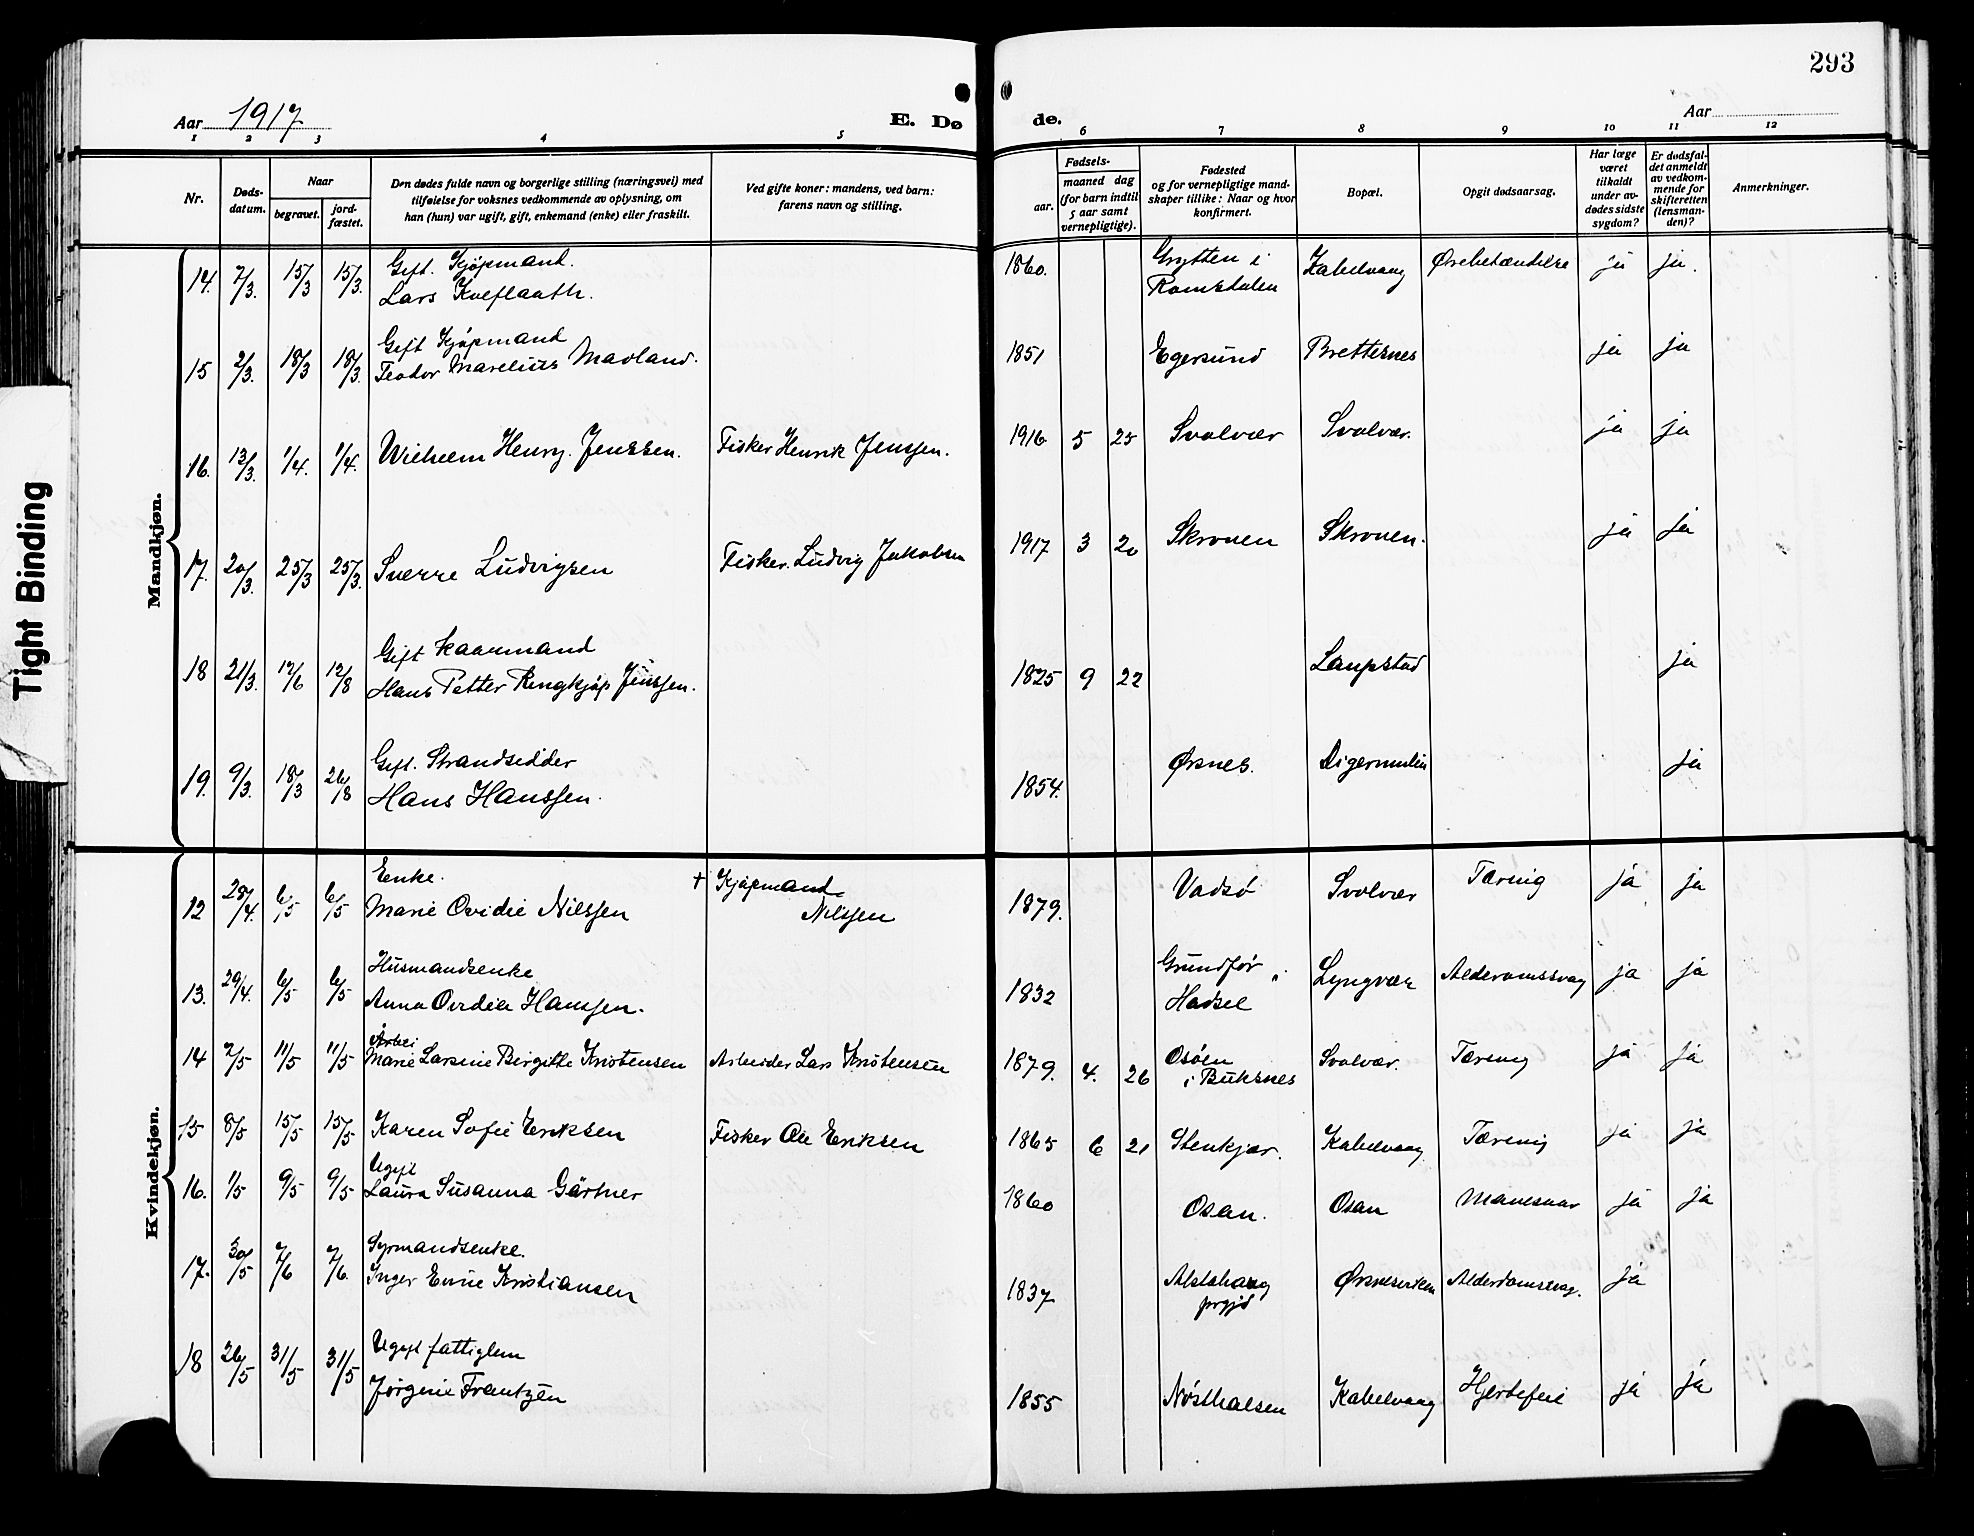 293
Aar 1917
E. Dø
de.
Aar
1 2 3 4 5
6 7 8 9 10 11 12
Nr.
Døds-
datum.
Naar
begravet.
jord-
fæstet.
Den dødes fulde navn og borgerlige stilling (næringsvei) med
tilføielse for voksnes vedkommende av oplysning, om
han (hun) var ugift, gift, enkemand (enke) eller fraskilt.
Ved gifte koner: mandens, ved barn:
farens navn og stilling.
Fødsels-
aar.
maaned dag
(for barn indtil
5 aar samt
vernepligtige).
Fødested
og for vernepligtige mand-
skaper tillike: Naar og hvor
konfirmert.
Bopæl.
Opgit dødsaarsag.
Har læge
været
tilkaldt
under av-
dødes sidste
sygdom?
Er dødsfal-
det anmeldt
av vedkom-
mende for
skifteretten
(lensman-
den)?
Anmerkninger.
Tight Binding
Mandkjøn.
14. 7/3. 15/3 15/3. Gift. Kjøpmand.
Lars Kveflaath.
1860. Grytten i
Romsdalen
Kabelvaag Ørebetændelse ja ja.
15 2/3. 18/3 18/3. Gift Kjøpmand
Teodor Marelius Mavland.
1851 Egersund Brettesnes ja ja
16. 13/3. 1/4. 1/4. Wilhelm Henry. Jenssen. Fisker Henrik Jenssen. 1916 5 25 Svolvær Svolvær. ja ja
17. 20/3. 25/3 25/3. Sverre Ludvigsen Fisker. Ludvig Jakobsen 1917 3 20 Skroven Skroven. ja ja
18 21/3. 12/6 12/8 Gift kaarmand
Hans Petter Ringkjøp Jenssen.
1825 9 22 Laupstad ja
19. 9/3. 18/3 26/8 Gift. Strandsidder
Hans Hanssen.
1854. Ørsnes. Digermulen ja
Kvindekjøn.
12 28/4. 6/5 6/5 Enke.
Marie Ovidie Nilssen
+ Kjøpmand
Nilssen
1879. Vadsø Svolvær Tæring ja ja
13. 29/4. 6/5 6/5 Husmandsenke
Anna Ovidia Hanssen.
1832 Grundfør
Hadsel
Lyngvær Alderdomssvag ja ja
14 2/5 11/5 11/5 Arbei
Marie Larsine Birgitte Kristensen Arbeider Lars Kristensen 1879. 4. 26
Osøen
i Buksnes
Svolvær. Tæring ja ja
15 8/5 15/5 15/5 Karen Sofie Eriksen Fisker Ole Eriksen 1865 6 21 Stenkjær. Kabelvaag Tæring ja ja
16. 1/5 9/5 9/5 Ugift
Laura Susanna Gärtner
1860 Osan. Osan ja ja
17. 30/5 7/6 7/6. Syrmandsenke.
Inger Enne Kristiansen
1837 Alstahaug
prgjd
Ørsnesviken Alderdomssvag. ja
18 26/5 31/5 31/5 Ugift fattiglem
Jørgine Frantzen
1855 Nøsthalsen Kabelvaag Hjertefeil ja ja